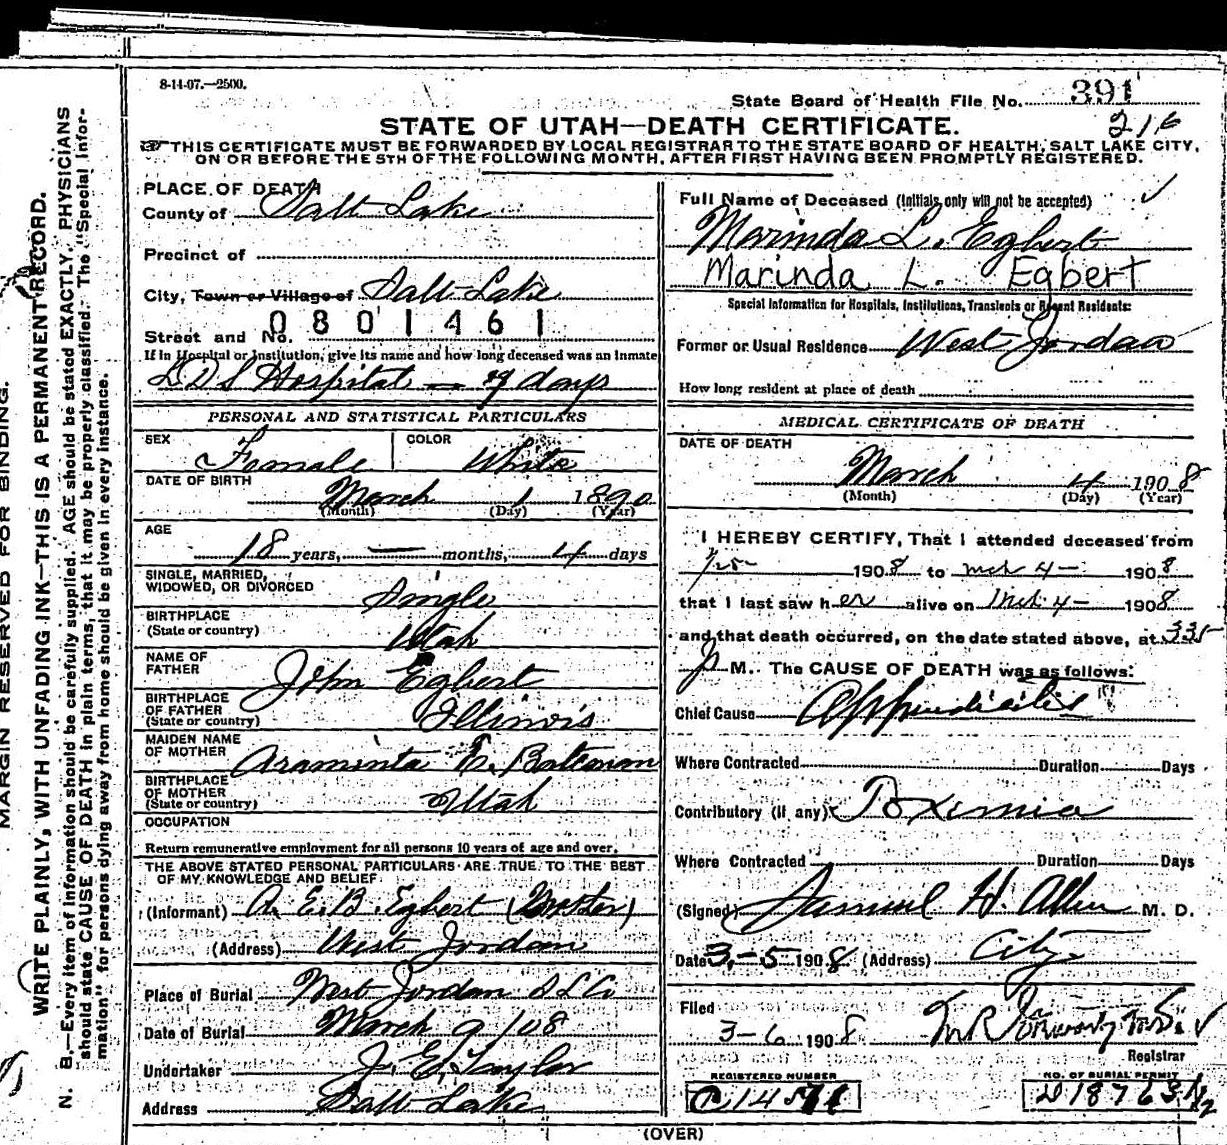 8-14-07.—2500.
State Board of Health File No. 391
216
STATE OF UTAH—DEATH CERTIFICATE.
THIS CERTIFICATE MUST BE FORWARDED BY LOCAL REGISTRAR TO THE STATE BOARD OF HEALTH, SALT LAKE CITY,
ON OR BEFORE THE 5TH OF THE FOLLOWING MONTH, AFTER FIRST HAVING BEEN PROMPTLY REGISTERED.
MARGIN RESERVED FOR BINDING.
WRITE PLAINLY, WITH UNFADING INK—THIS IS A PERMANENT RECORD.
N. B.—Every item of information should be carefully supplied. AGE should be stated EXACTLY. PHYSICIANS
should state CAUSE OF DEATH in plain terms, that it may be properly classified. The "Special Infor-
mation" for persons dying away from home should be given in every instance.
PLACE OF DEATH
County of Salt Lake
Precinct of
City, Town or Village of Salt Lake
0801461
Street and No.
If in Hospital or Institution, give its name and how long deceased was an Inmate
LDS Hospital — 9 days
PERSONAL AND STATISTICAL PARTICULARS
SEX Female COLOR White
DATE OF BIRTH
March 1 1890
(Month) (Day) (Year)
AGE
18 years, — months, 4 days
SINGLE, MARRIED,
WIDOWED, OR DIVORCED Single
BIRTHPLACE
(State or country) Utah
NAME OF
FATHER John Egbert
BIRTHPLACE
OF FATHER
(State or country) Illinois
MAIDEN NAME
OF MOTHER Araminta E. Bateman
BIRTHPLACE
OF MOTHER
(State or country) Utah
OCCUPATION
Return remunerative employment for all persons 10 years of age and over.
THE ABOVE STATED PERSONAL PARTICULARS ARE TRUE TO THE BEST
OF MY KNOWLEDGE AND BELIEF
(Informant) A. E. B. Egbert
(Address) West Jordan
Place of Burial West Jordan S L Co
Date of Burial March 9 / 08
Undertaker J. E. Taylor
Address Salt Lake
Full Name of Deceased (Initials only will not be accepted)
Marinda L. Egbert
Marinda L. Egbert
Special Information for Hospitals, Institutions, Transients or Recent Residents:
Former or Usual Residence West Jordan
How long resident at place of death
MEDICAL CERTIFICATE OF DEATH
DATE OF DEATH
March 4 1908
(Month) (Day) (Year)
I HEREBY CERTIFY, That I attended deceased from
1908 to Mch 4 — 1908
that I last saw her alive on Mch 4 — 1908
and that death occurred, on the date stated above, at 335
P M. The CAUSE OF DEATH was as follows:
Chief Cause Appendicitis
Where Contracted Duration Days
Contributory (if any) Toxemia
Where Contracted Duration Days
(Signed) Samuel H. Allen M. D.
Date 3-5-1908 (Address) City
Filed
3-6-1908
Registrar
REGISTERED NUMBER NO. OF BURIAL PERMIT
(OVER)